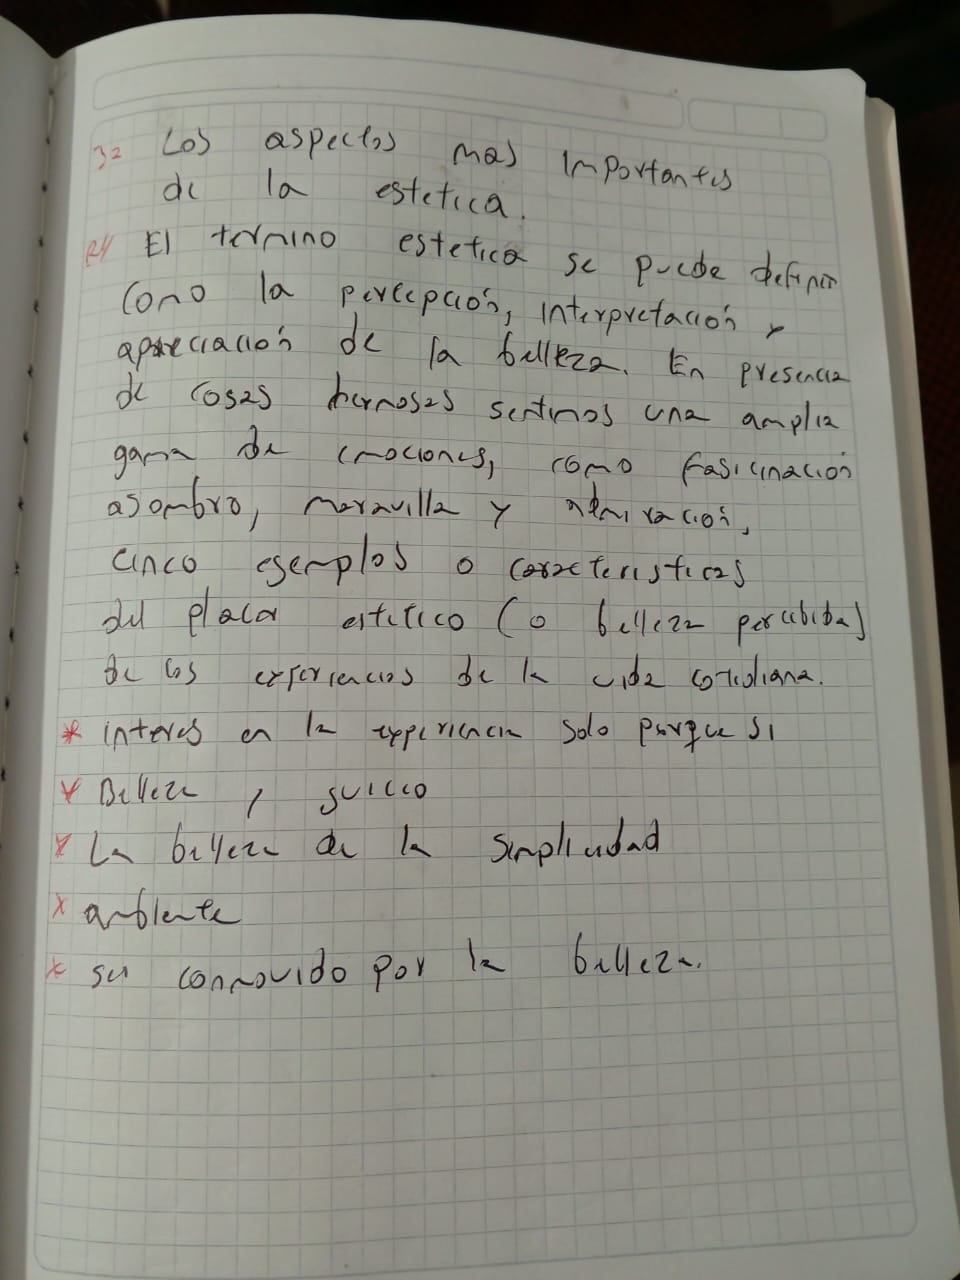 32 Los aspectos mas importantes
de la estetica.
R// El termino estetica se puede definir
como la percepción, interpretación y
apreciación de la belleza. En presencia
de cosas hermosas sentimos una amplia
gama de emociones, como fasicinación
asombro, maravilla y admiración,
cinco ejemplos o caracteristicas
del placer estetico (o belleza percibida)
de las experiencias de la vida cotidiana.
* interes en la experiencia solo porque si
* Belleza y juicio
* La belleza de la simplicidad
* ambiente
* ser conmovido por la belleza.